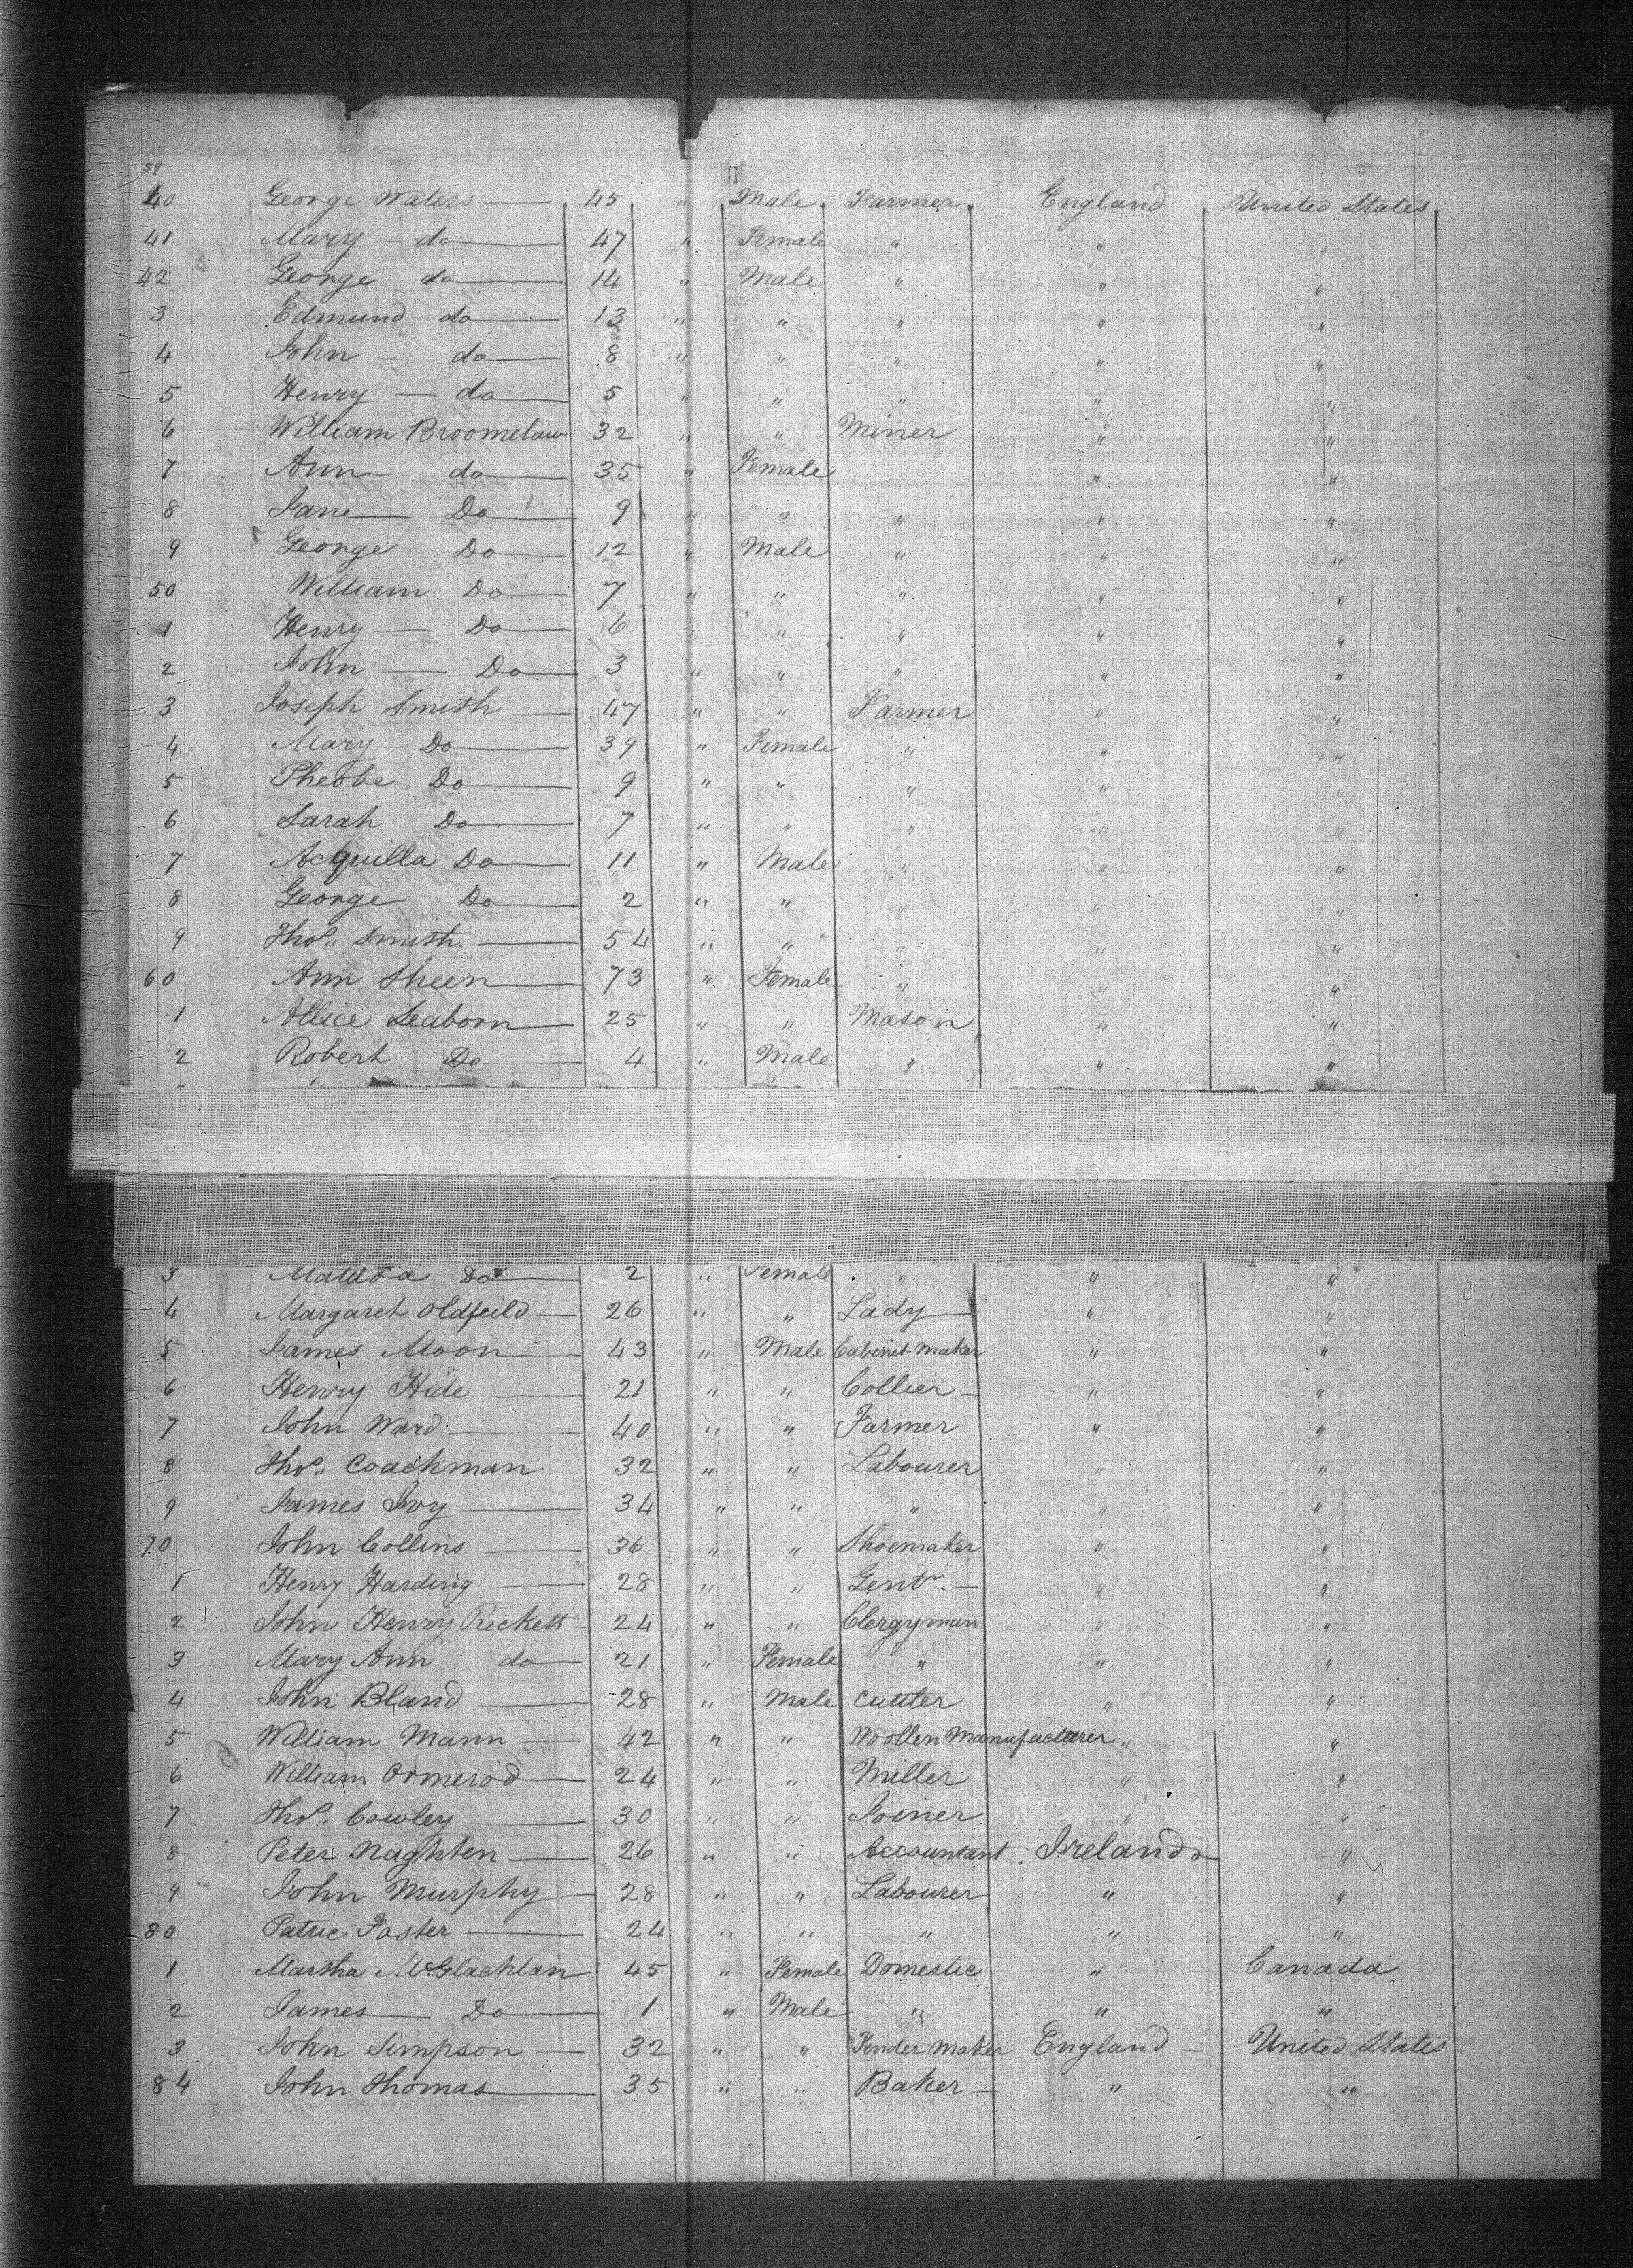 39
40 George Waters 45 " Male Farmer England United States
41 Mary do 47 " Female " " "
42 George do 14 " Male " " "
3 Edmund do 13 " " " " "
4 John do 8 " " " " "
5 Henry do 5 " " " " "
6 William Broomelaw 32 " " Miner " "
7 Ann do 35 " Female " "
8 Jane Do 9 " " " " "
9 George Do 12 " Male " " "
50 William Do 7 " " " " "
1 Henry Do 6 " " " " "
2 John Do 3 " " " " "
3 Joseph Smith 47 " " Farmer " "
4 Mary Do 39 " Female " " "
5 Pheobe Do 9 " " " " "
6 Sarah Do 7 " " " " "
7 Acquilla Do 11 " Male " " "
8 George Do 2 " " " " "
9 Thos. Smith 54 " " " " "
60 Ann Sheen 73 " Female " " "
1 Allice Seaborn 25 " " Mason " "
2 Robert Do 4 " Male " " "
3 Matilda Do 2 " Female " " "
4 Margaret Oldfeild 26 " " Lady " "
5 James Moon 43 " Male Cabinet Maker " "
6 Henry Hide 21 " " Collier " "
7 John Ward 40 " " Farmer " "
8 Thos. Coachman 32 " " Labourer " "
9 James Ivy 34 " " " " "
70 John Collins 36 " " Shoemaker " "
1 Henry Harding 28 " " Gentn. " "
2 John Henry Rickett 24 " " Clergyman " "
3 Mary Ann do 21 " Female " " "
4 John Bland 28 " Male Cuttler " "
5 William Mann 42 " " Woollen Manufacturer " "
6 William Ormerod 24 " " Miller " "
7 Thos. Cowley 30 " " Joiner " "
8 Peter Naghten 26 " " Accountant Ireland "
9 John Murphy 28 " " Labourer " "
80 Patric Foster 24 " " " " "
1 Martha McGlachlan 45 " Female Domestic " Canada
2 James Do 1 " Male " " "
3 John Simpson 32 " " Fender Maker England United States
84 John Thomas 35 " " Baker " "